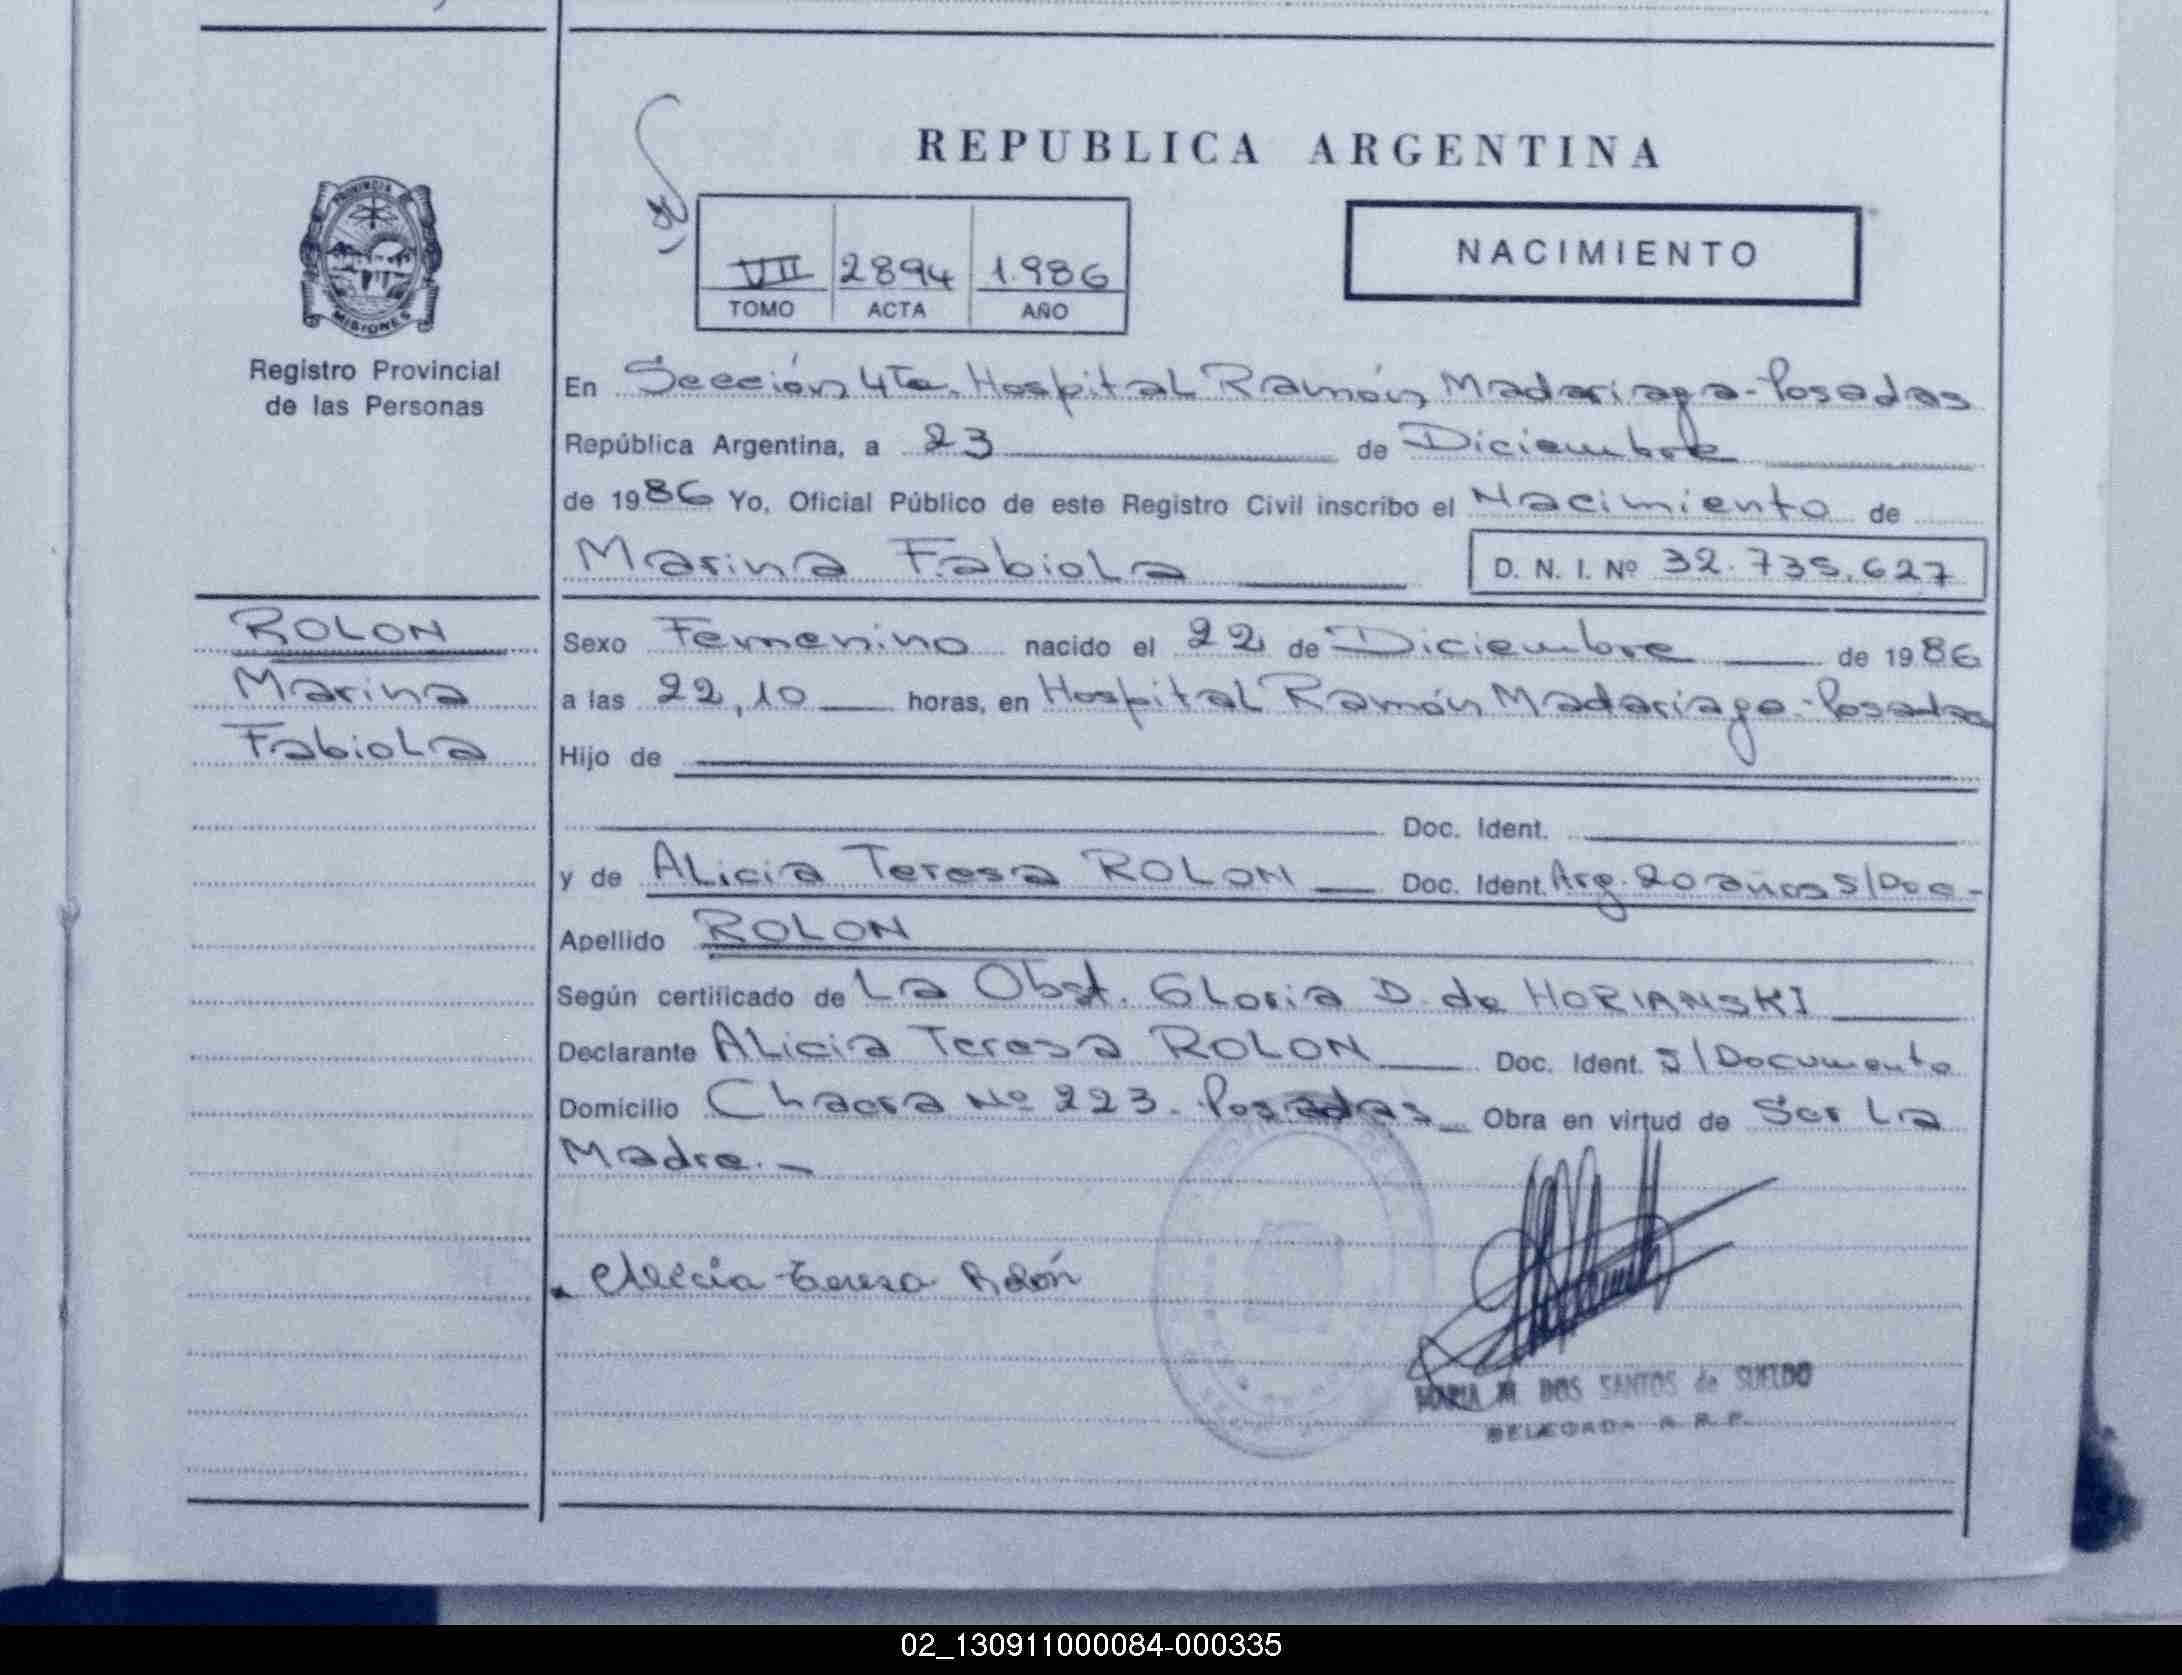 REPUBLICA ARGENTINA
PROVINCIA
MISIONES
Registro Provincial
de las Personas
VII 2894 1.986
TOMO ACTA AÑO
NACIMIENTO
En Sección 4Ta. Hospital Ramón Madariaga - Posadas
República Argentina, a 23 de Diciembre
de 1986 Yo, Oficial Público de este Registro Civil inscribo el Nacimiento de
Marina Fabiola D. N. I. Nº 32.735.627
ROLON
Marina
Fabiola
Sexo Femenino nacido el 22 de Diciembre de 1986
a las 22,10 horas, en Hospital Ramón Madariaga - Posadas
Hijo de
Doc. Ident.
y de Alicia Teresa ROLON Doc. Ident. Arg. 20 años S/Doc-
Apellido ROLON
Según certificado de La Obst. Gloria D. de HORIANSKI
Declarante Alicia Teresa ROLON Doc. Ident. S/Documento
Domicilio Chacra Nº 223. Posadas Obra en virtud de Ser La
Madre.-
Alicia Teresa Rolón
MARIA M. DOS SANTOS de SUELDO
DELEGADA R. P.
02_130911000084-000335